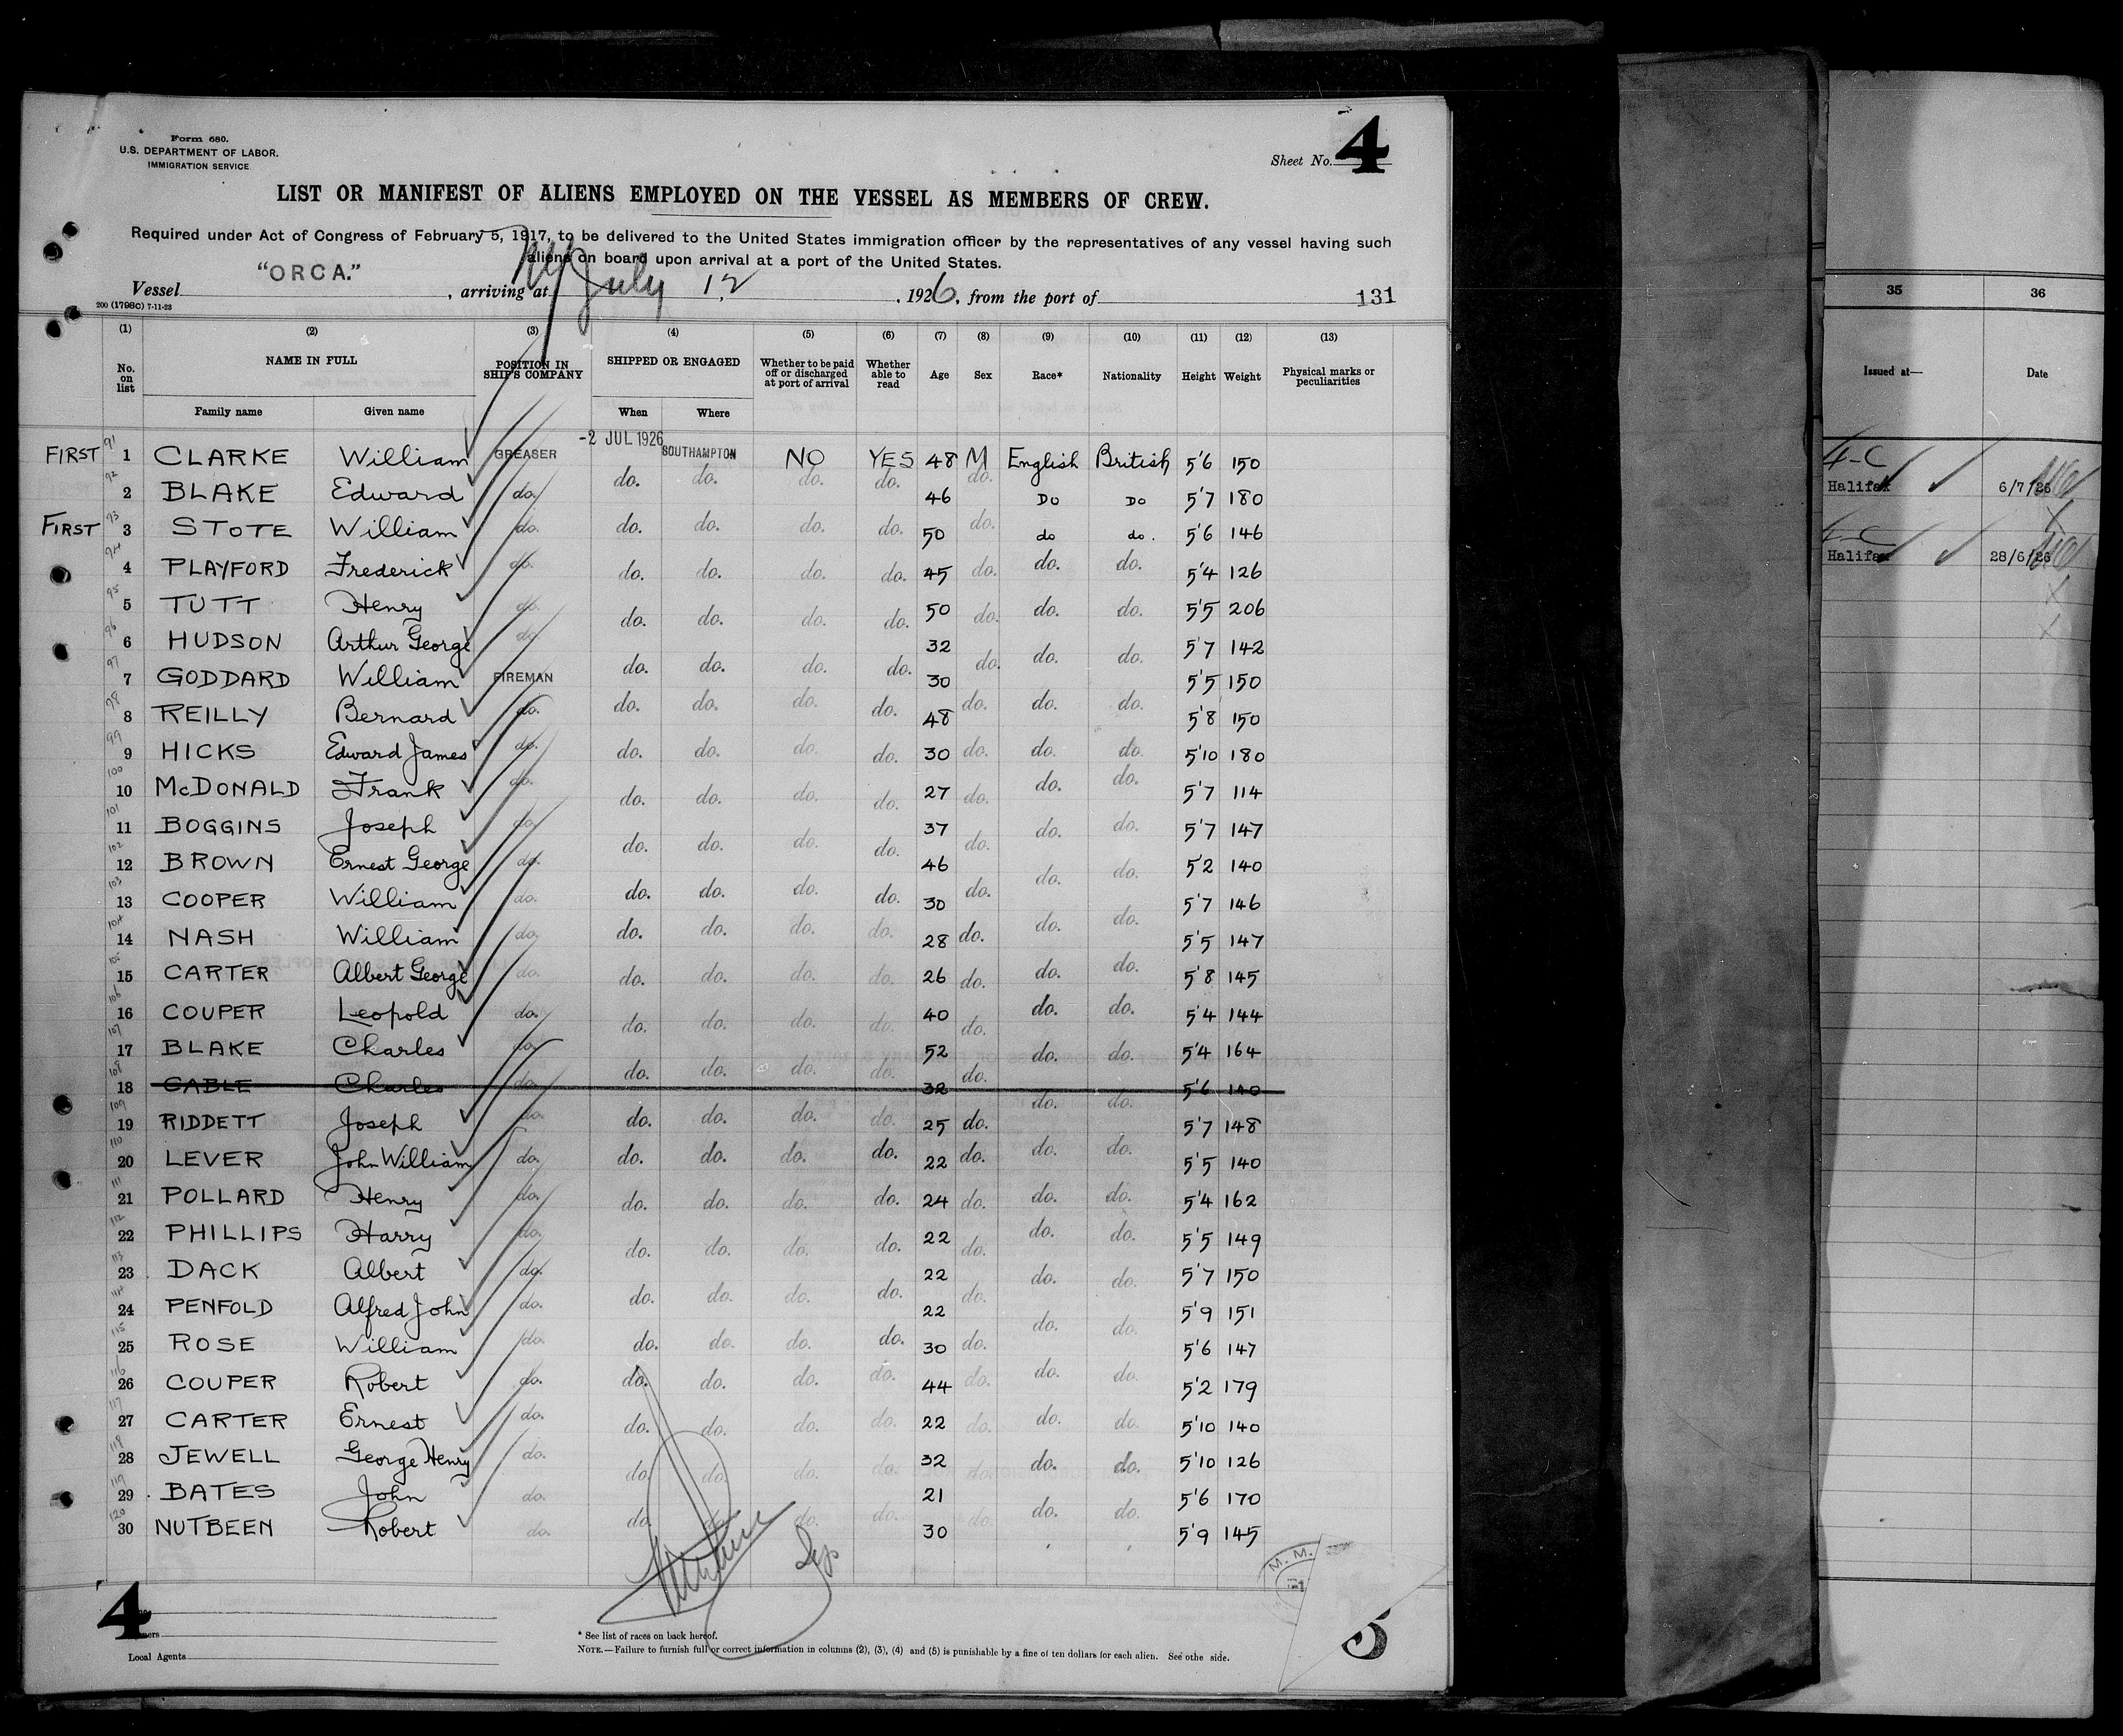 Form 680.
U.S. DEPARTMENT OF LABOR.
IMMIGRATION SERVICE
Sheet No. 4
LIST OR MANIFEST OF ALIENS EMPLOYED ON THE VESSEL AS MEMBERS OF CREW.
Required under Act of Congress of February 5, 1917, to be delivered to the United States immigration officer by the representatives of any vessel having such
aliens on board upon arrival at a port of the United States.
Vessel "ORCA." , arriving at July 12, 1926, from the port of 131
200 (1798C) 7-11-23
(1) (2) (3) (4) (5) (6) (7) (8) (9) (10) (11) (12) (13) 35 36
No. on list NAME IN FULL POSITION IN SHIP'S COMPANY SHIPPED OR ENGAGED Whether to be paid off or discharged at port of arrival Whether able to read Age Sex Race* Nationality Height Weight Physical marks or peculiarities Issued at— Date
Family name Given name When Where
FIRST 91 1 CLARKE William GREASER -2 JUL 1926 SOUTHAMPTON NO YES 48 M English British 5'6 150 4-C
92 2 BLAKE Edward do. do. do. do. do. 46 do. Do Do 5'7 180 Halifax 6/7/26
FIRST 93 3 STOTE William do. do. do. do. do. 50 do. do do. 5'6 146 -C
94 4 PLAYFORD Frederick do. do. do. do. do. 45 do. do. do. 5'4 126 Halifax 28/6/26
95 5 TUTT Henry do. do. do. do. do. 50 do. do. do. 5'5 206
96 6 HUDSON Arthur George do. do. do. do. do. 32 do. do. do. 5'7 142
97 7 GODDARD William FIREMAN do. do. do. do. 30 do. do. do. 5'5 150
98 8 REILLY Bernard do. 48 5'8 150
99 9 HICKS Edward James do. do. do. do. do. 30 do. do. do. 5'10 180
100 10 McDONALD Frank do. do. do. do. do. 27 do. do. do. 5'7 114
101 11 BOGGINS Joseph do. do. do. do. do. 37 do. do. do. 5'7 147
102 12 BROWN Ernest George do. 46 do. do. 5'2 140
103 13 COOPER William do. do. do. do. do. 30 do. do. do. 5'7 146
104 14 NASH William do. do. do. do. do. 28 do. do. do. 5'5 147
105 15 CARTER Albert George do. do. do. do. do. 26 do. do. do. 5'8 145
106 16 COUPER Leopold do. do. do. do. do. 40 do. do. do. 5'4 144
107 17 BLAKE Charles do. do. do. do. do. 52 do. do. do. 5'4 164
108 18 CABLE Charles do. 32 do. do. 5'6 140
109 19 RIDDETT Joseph do. do. do. do. do. 25 do. 5'7 148
110 20 LEVER John William do. do. do. do. do. 22 do. do. do. 5'5 140
111 21 POLLARD Henry do. do. do. do. do. 24 do. do. do. 5'4 162
112 22 PHILLIPS Harry do. do. do. do. do. 22 do. do. do. 5'5 149
113 23 DACK Albert do. 22 do. do. 5'7 150
114 24 PENFOLD Alfred John do. do. do. do. do. 22 do. do. do. 5'9 151
115 25 ROSE William do. do. do. do. do. 30 do. 5'6 147
116 26 COUPER Robert do. do. do. do. do. 44 do. do. do. 5'2 179
117 27 CARTER Ernest do. do. do. do. do. 22 do. do. do. 5'10 140
118 28 JEWELL George Henry do. do. do. do. do. 32 do. do. do. 5'10 126
119 29 BATES John do. 21 5'6 170
120 30 NUTBEEN Robert do. do. do. do. do. 30 do. do. do. 5'9 145
M. M.
4
5
Local Agents
* See list of races on back hereof.
NOTE.—Failure to furnish full or correct information in columns (2), (3), (4) and (5) is punishable by a fine of ten dollars for each alien. See othe side.